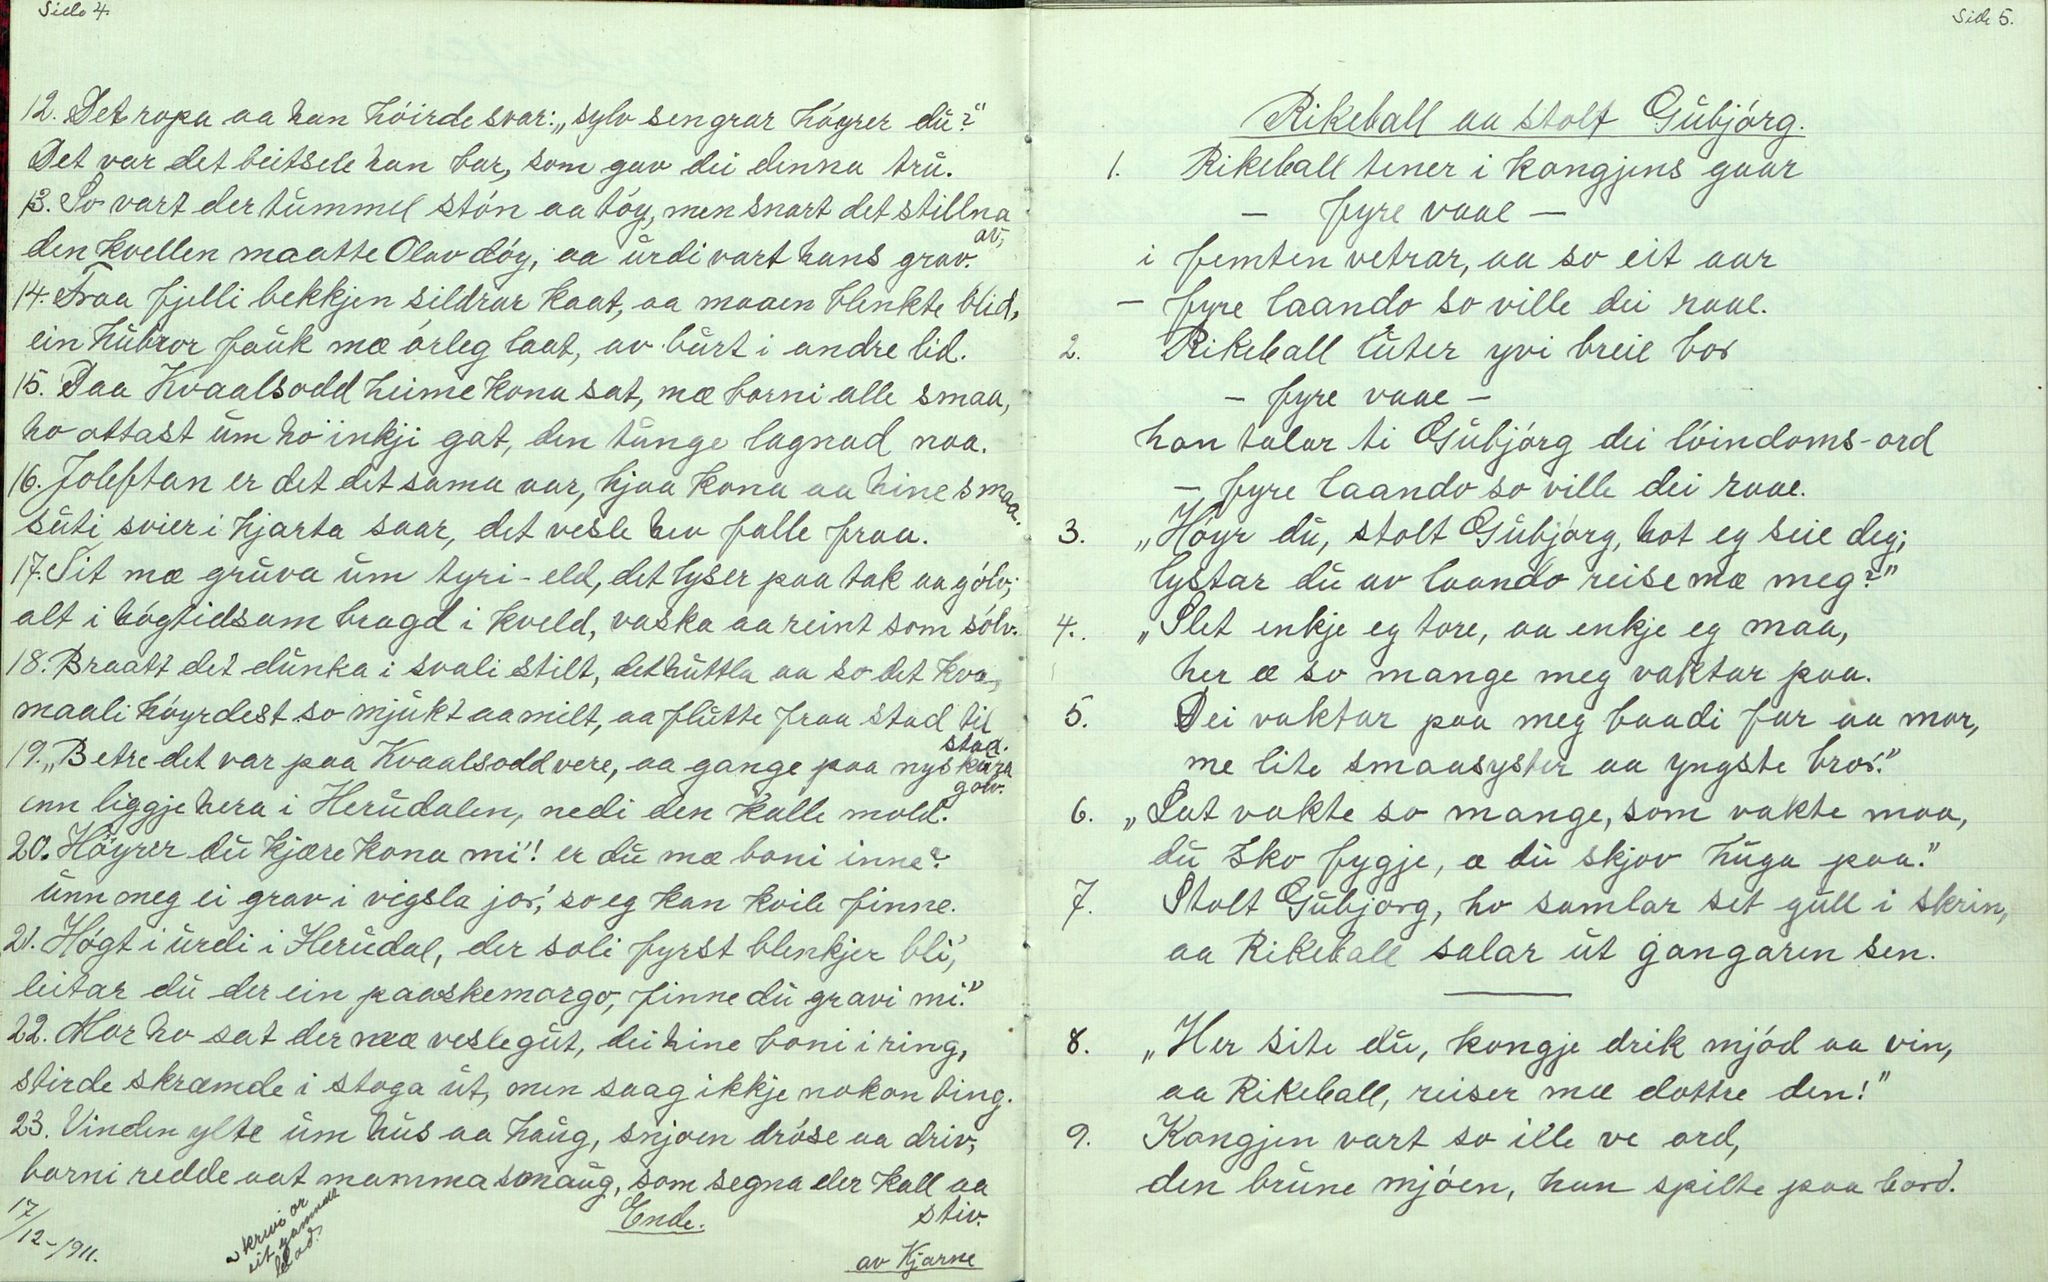 Side 4.
12. Det ropa aa han höirde svar: „sylv sengrar höyrer du?"
Det var det beitsele han bar, som gav dei denna tru.
13. So vart der tummel stön aa töy, men snart det stillna av,
den kvellen maatte Olav döy, aa urdi vart hans grav.
14. Fraa fjelli bekkjen sildrar kaat, aa maaen blenkte blid,
ein hubror fauk mæ örleg laat, av burt i andre lid.
15. Paa Kvaalsodd heime kona sat, mæ borni alle smaa,
ho ottast um ho inkji gat, den tunge lagnad naa.
16. Joleftan er det det sama aar, hjaa kona aa hine smaa.
suti svier i hjarta saar, det vesle hev falle fraa.
17. Sit mæ gruva um tyri-eld, det lyser paa tak aa gölv;
alt i högtidsam bragd i kveld, vaska aa reint som sölv.
18. Braatt det dunka i svali stilt, det huttla aa so det kva,
maali höyrdest so mjukt aa milt, aa flutte fraa stad til stad.
19. „Betre det var paa Kvaalsodd vere, aa gange paa nyskura golv.
enn liggje hera i Herudalen, nedi den kalle mold.
20. Höyrer du kjære kona mi! er du mæ boni inne?
unn meg ei grav i vigsla jor', so eg kan kvile finne.
21. Högt i urdi i Herudal, der soli fyrst blenkjer bli',
leitar du der ein paaskemorgo, finne du gravi mi."
22. Mor ho sat der mæ veslegut, dei hine boni i ring,
stirde skræmde i stoga ut, men saag ikkje nokon ting.
23. Vinden ylte um hus aa haug, snjoen dröse aa driv,
borni redde aat mamma smaug, som segna der kall aa stiv.
17/12-1911.
skrivi or
eit gammalt
blad.
Ende.
av Kjarne
Side 5.
Rikeball aa stolt Gubjörg.
1. Rikeball tener i kongjens gaar
– fyre vaae –
i femten vetrar, aa so eit aar
– fyre laando so ville dei raae.
2. Rikeball luter yvi breie bor
– fyre vaae –
han talar ti Gubjörg dei löindoms-ord
– fyre laando so ville dei raae.
3. „Höyr du, stolt Gubjörg, hot eg seie deg;
lystar du av laando reise mæ meg?"
4. „Slet enkje eg tore, aa enkje eg maa,
her æ so mange meg vaktar paa.
5. Dei vaktar paa meg baadi far aa mor,
me lite smaasyster aa yngste bror."
6. „Lat vakte so mange, som vakte maa,
du sko fygje, æ du skjov huga paa."
7. Stolt Gubjorg, ho samlar set gull i skrin,
aa Rikeball salar ut gangaren sen.
8. „Her site du, kongje drik mjöd aa vin,
aa Rikeball, reiser mæ dottre den!"
9. Kongjen vart so ille ve ord,
den brune mjöen, han spilte paa bord.